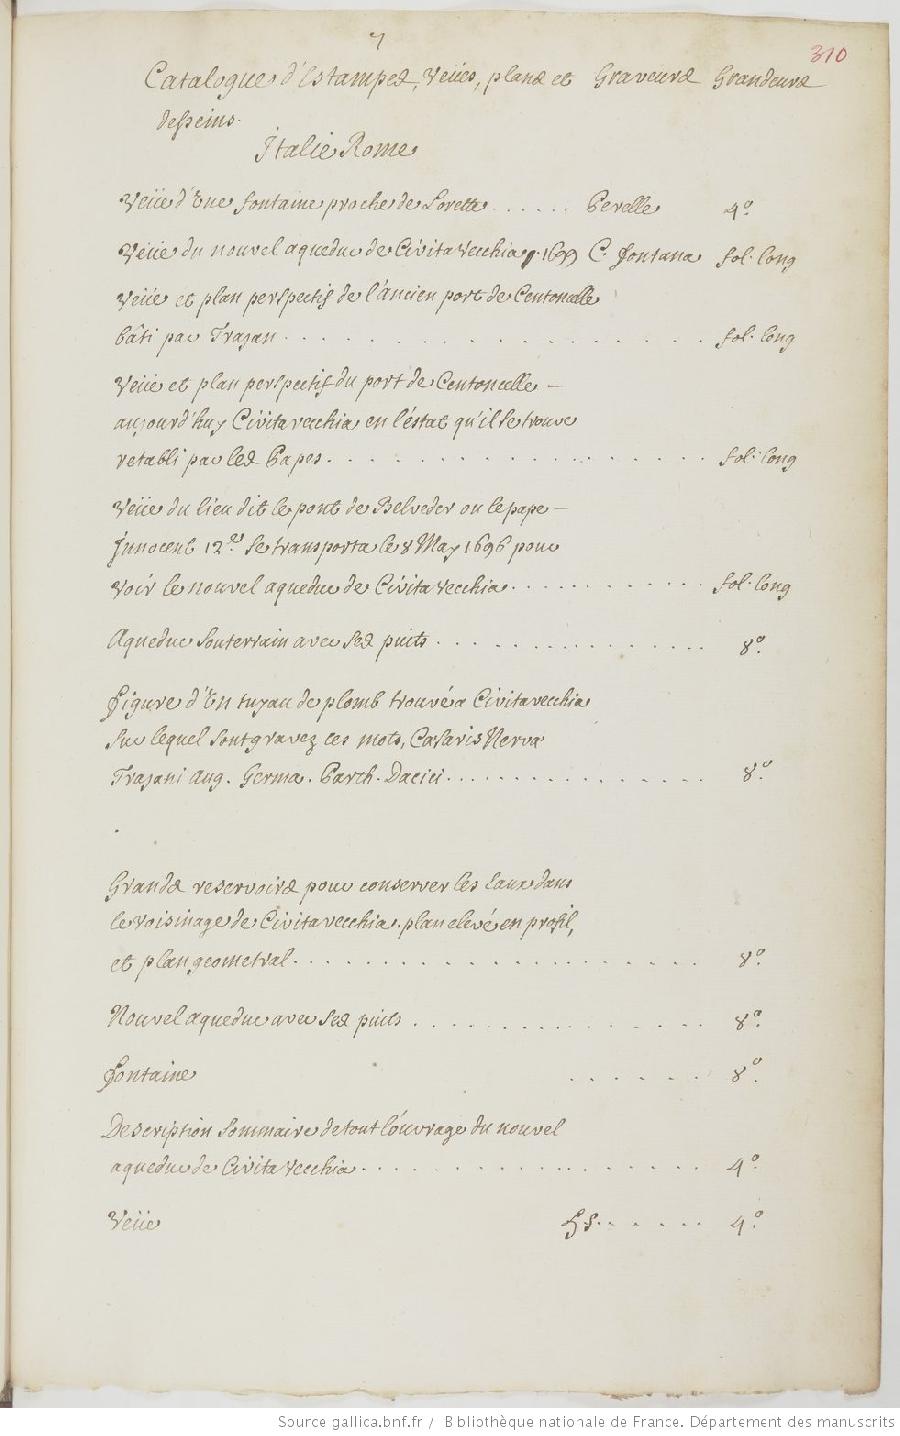 7
310
Catalogue d'Estampes, Veües, plans et Graveurs Grandeurs
desseins.
Italie Rome
Veüe d'Une fontaine proche de Lorette . . . . . . Perelle 4.º
Veüe du nouvel aqueduc de Civita Vecchia, 1699 C. Fontana fol. long
Veüe et plan perspectif de l'ancien port de Centoncelle
bâti par Trajan . . . . . . . . . . . . . . . . . . fol. long
Veüe et plan perspectif du port de Centoncelle –
aujourd'huy Civitavecchia en l'éstat qu'il se trouve
retabli par les Papes . . . . . . . . . . . . . . . . . . fol. long
Veüe du lieu dit le pont de Belveder ou le pape –
Innocent 12.e se transporta le 8 May 1696 pour
voir le nouvel aqueduc de Civita Vecchia . . . . . . . . . . . fol. long
Aqueduc souterrain avec ses puits . . . . . . . . . . . . . . . 8.º
Figure d'Un tuyau de plomb trouvé a Civitavecchia
sur lequel sont gravez ces mots, Cæsaris Nerva
Trajani Aug. Germa. Parth. Dacici . . . . . . . . . . . . . . . 8.º
Grands reservoirs pour conserver les Eaux dans
le voisinage de Civitavecchia. plan elevé en profil,
et plan geometral . . . . . . . . . . . . . . . . . . . . . 8.º
Nouvel aqueduc avec ses puits . . . . . . . . . . . . . . . 8.º
Fontaine . . . . . . 8.º
Description sommaire de tout l'ouvrage du nouvel
aqueduc de Civita Vecchia . . . . . . . . . . . . . . . . . 4.º
Veüe . . . . . . 4.º
Source gallica.bnf.fr / Bibliothèque nationale de France. Département des manuscrits